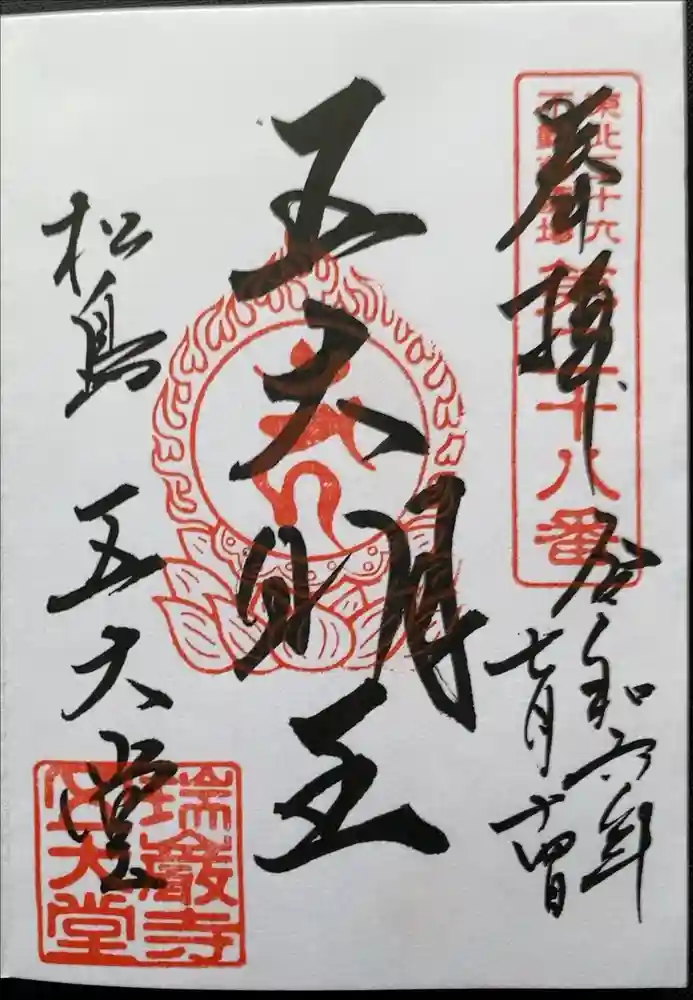 奉拝
東北三十六
不動尊霊場
第二十八番
令和六年
七月十四日
五大明王
松島 五大堂
瑞巖寺
五大堂